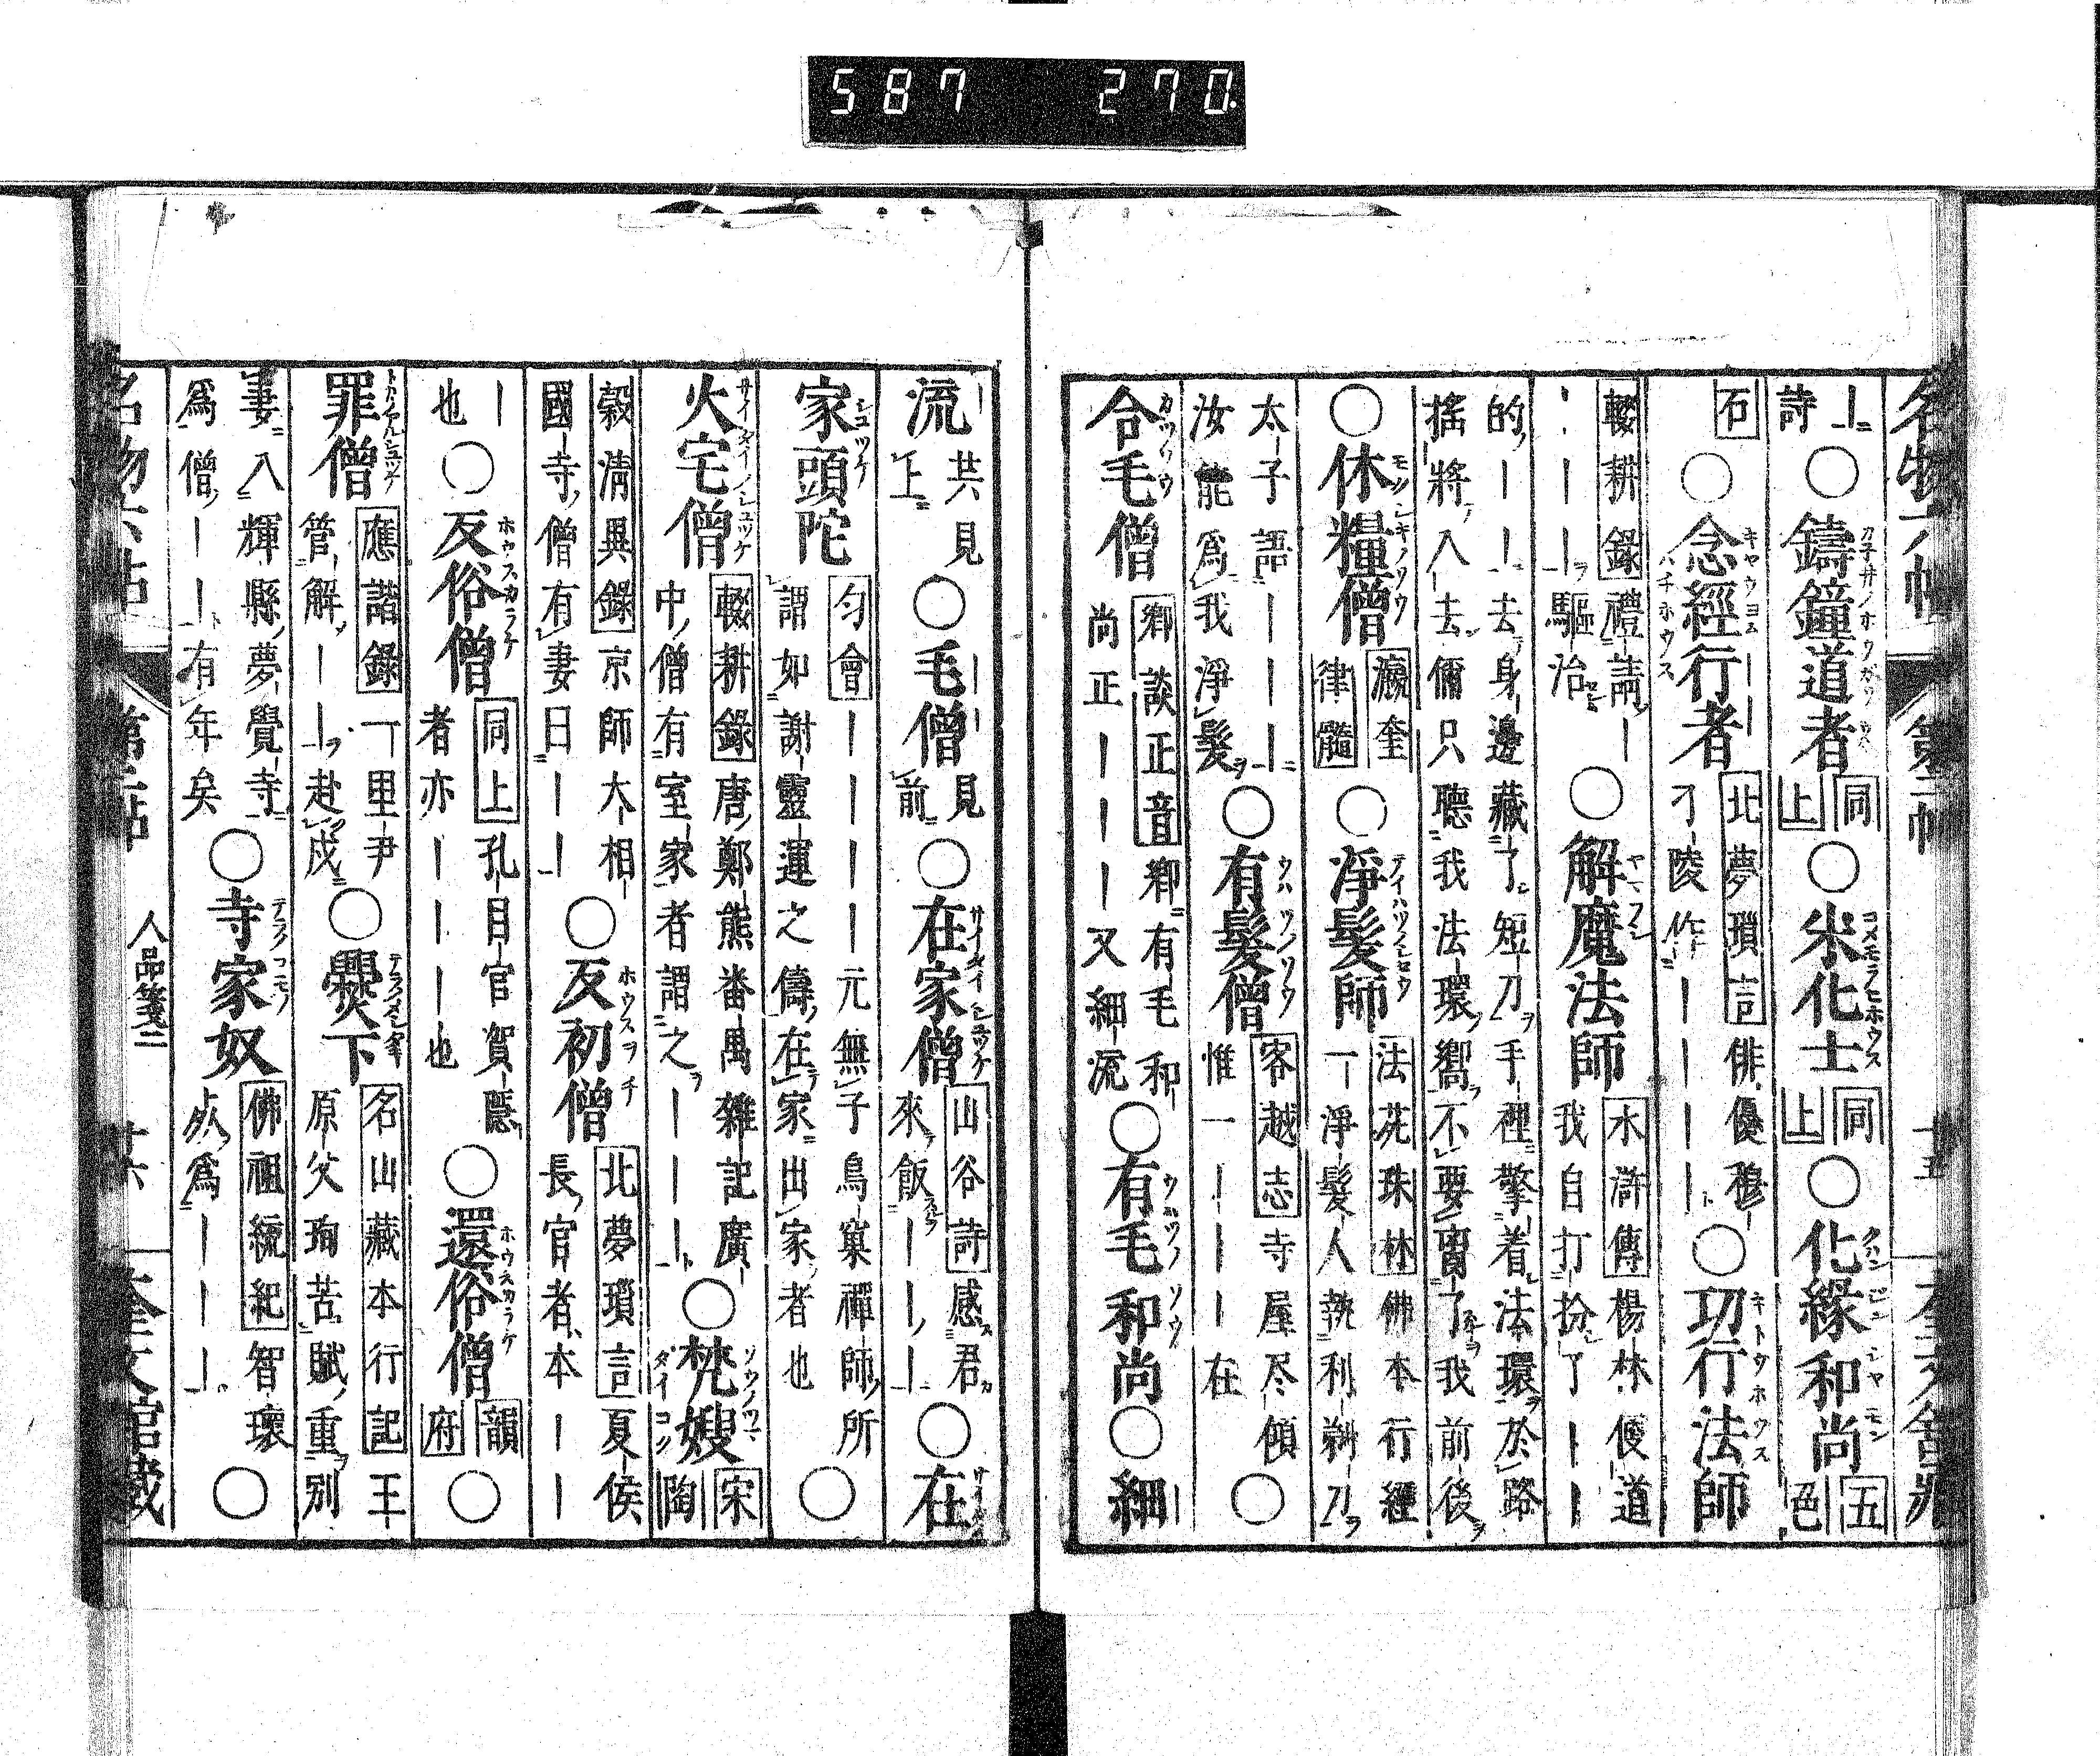 587 270.
名物六帖 第二帖
｜詩○鑄鐘道者同上○米化士同上○化緣和尚五色
石○念經行者北夢瑣言俳優穆刁陵作｜｜｜｜○功行法師
輟耕錄禮請｜｜｜｜驅治○解魔法師水滸傳楊林便道我自打扮了｜｜
的｜｜去身邊藏了短刀手裡擎着法環於路搖將入去儞只聽我法環響不要离了我前後
○休糧僧瀛奎律髓○淨髮師法苑珠林佛本行經一淨髮人執利剃刀
太子語｜｜｜汝能為我淨髮○有髮僧客越志寺屋尽傾惟一｜｜｜在○
合毛僧鄉談正音鄉有毛和尚正｜｜｜又細流○有毛和尚○細
流共見上○毛僧見前○在家僧山谷詩感君來飯｜｜｜○在
家頭陀匀會｜｜｜｜元無子鳥窠禪師所謂如謝靈運之儔在家出家者也○
火宅僧輟耕錄唐鄭熊番禺雜記廣中僧有室家者謂之｜｜｜○梵嫂宋陶
穀清異錄京師大相國寺僧有妻曰｜｜○反初僧北夢瑣言夏侯長官者本｜｜
｜也○反俗僧同上孔目官賀隱者亦｜｜｜也○還俗僧韻府○
罪僧應諧錄一里尹管解｜｜赴戍○爨下名山藏本行記王原父珣苦賦重別
妻入輝縣夢覺寺為僧｜｜有年矣○寺家奴佛祖統紀智瓌从為｜｜｜○
人品箋二